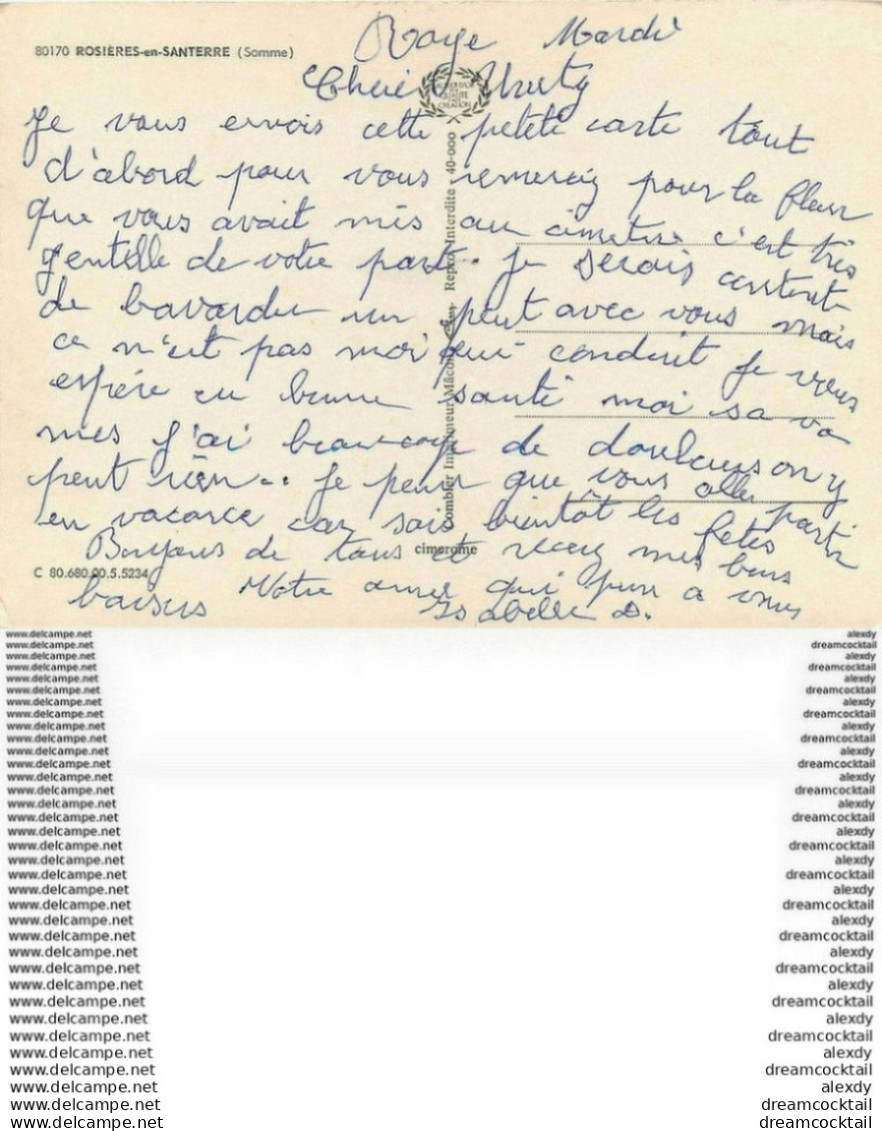 80170 ROSIÈRES-en-SANTERRE (Somme)
Roye Mardi
Je vous envois cette petite carte tout
d'abord pour vous remerciz pour la fleur
que vous avait mis au cimetire c'est très
gentelle de votre part. Je serais contente
de bavarder un peut avec vous mais
ce n'est pas moi qui conduit Je vous
espère en bonne santé moi sa va
mes j'ai beaucoup de douleurs on y
peut rien.. Je pense que vous aller partir
en vacance car sais bientôt les fetes
Bonjours de tous et recez mes bons
baisers Votre amie qui pense a vous
Isabelle D.
Combier Imprimeur Mâcon Repro. Interdite 40-000
cimerome
C 80.680.00.5.5234
www.delcampe.net alexdy
www.delcampe.net dreamcocktail
www.delcampe.net alexdy
www.delcampe.net dreamcocktail
www.delcampe.net alexdy
www.delcampe.net dreamcocktail
www.delcampe.net alexdy
www.delcampe.net dreamcocktail
www.delcampe.net alexdy
www.delcampe.net dreamcocktail
www.delcampe.net alexdy
www.delcampe.net dreamcocktail
www.delcampe.net alexdy
www.delcampe.net dreamcocktail
www.delcampe.net alexdy
www.delcampe.net dreamcocktail
www.delcampe.net alexdy
www.delcampe.net dreamcocktail
www.delcampe.net alexdy
www.delcampe.net dreamcocktail
www.delcampe.net alexdy
www.delcampe.net dreamcocktail
www.delcampe.net alexdy
www.delcampe.net dreamcocktail
www.delcampe.net alexdy
www.delcampe.net dreamcocktail
www.delcampe.net alexdy
www.delcampe.net dreamcocktail
www.delcampe.net alexdy
www.delcampe.net dreamcocktail
www.delcampe.net alexdy
www.delcampe.net dreamcocktail
www.delcampe.net alexdy
www.delcampe.net dreamcocktail
www.delcampe.net dreamcocktail